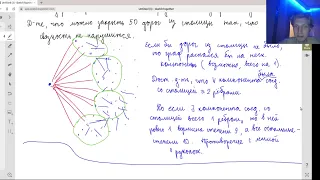 Д-те, что можно закрыть 50 дорог из столицы так, что
связность не нарушится.
если бы дорог из столицы не было,
то граф распался бы на неск.
компонент (возможно, всего на 1).
была
Дост. д-ть, что ∀ компонента соед
со столицей ≥ 2 рёбрами.
Но если ∃ компонента соед. со
столицей всего 1 ребром, то в ней
ровно 1 вершина степени 9, а все остальные
степени 10. Противоречие с леммой
о рукопож.